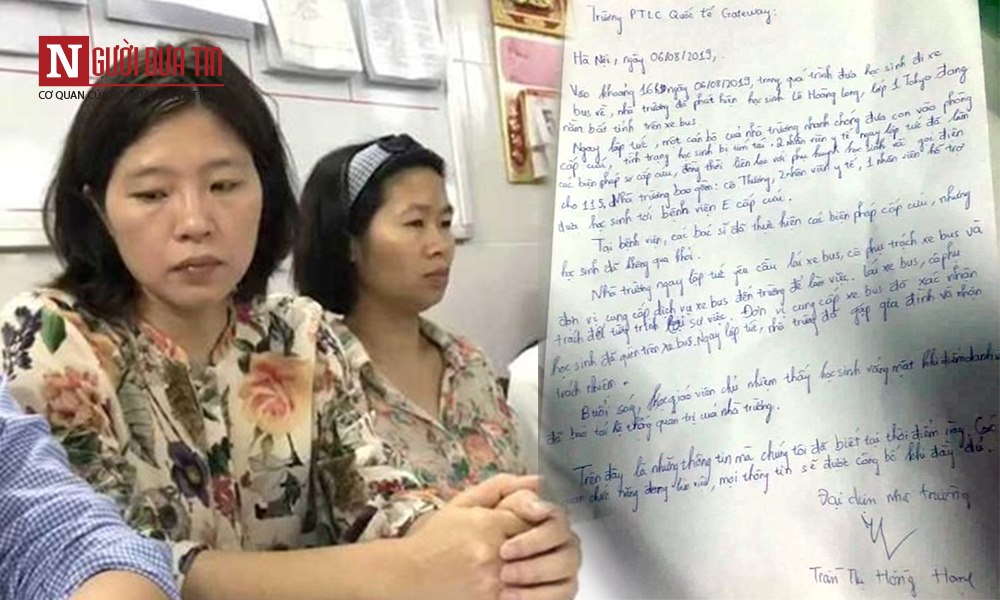 NGƯỜI ĐƯA TIN
CƠ QUAN CỦA
Trường PTLC Quốc tế Gateway:
Hà Nội, ngày 06/08/2019,.
Vào khoảng 16h ngày 06/08/2019, trong quá trình đưa học sinh đi xe
bus về, nhà trường đã phát hiện học sinh Lê Hoàng Long, lớp 1 Tokyo đang
nằm bất tỉnh trên xe bus.
Ngay lập tức, một cán bộ của nhà trường nhanh chóng đưa con vào phòng
cấp cứu, tình trạng học sinh bị tím tái, 2 nhân viên y tế ngay lập tức đã làm
các biện pháp sơ cấp cứu, đồng thời liên lạc với phụ huynh học sinh và gọi điện
cho 115. Nhà trường bao gồm: cô Thương, 2 nhân viên y tế, 1 nhân viên hỗ trợ
đưa học sinh tới bệnh viện E cấp cứu.
Tại bệnh viện, các bác sĩ đã thực hiện các biện pháp cấp cứu, nhưng
học sinh đã không qua khỏi.
Nhà trường ngay lập tức yêu cầu lái xe bus, cô phụ trách xe bus và
đơn vị cung cấp dịch vụ xe bus đến trường để làm việc. Lái xe bus, cô phụ
trách để tường trình lại sự việc. Đơn vị cung cấp xe bus đã xác nhận
học sinh đã quên trên xe bus. Ngay lập tức, nhà trường đã gặp gia đình và nhận
trách nhiệm.
Buổi sáng, giáo viên chủ nhiệm thấy học sinh vắng mặt khi điểm danh
đã báo tới hệ thống quản trị của nhà trường.
Trên đây là những thông tin mà chúng tôi đã biết tại thời điểm này. Các
cơ chức năng đang làm việc, mọi thông tin sẽ được công bố khi đầy đủ.
Đại diện nhà trường
Trần Thị Hồng Hạnh